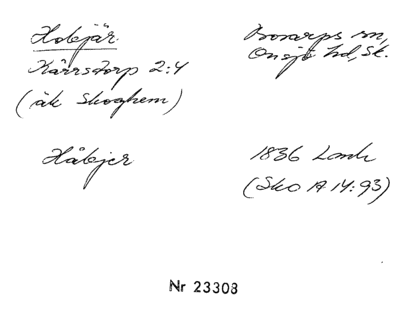 Hobjär
Kärrstorp 2:4
(äk Skoghem)
Bosarps sn,
Onsjö hd, Sk.
Håbjer
1836 Lantm
(Sko A 14:93)
Nr 23308